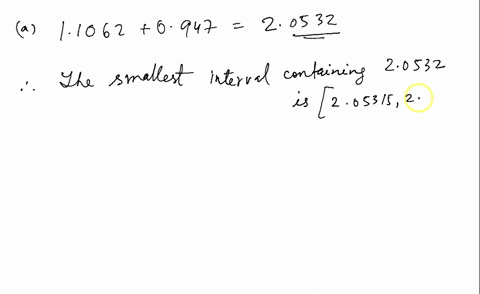 (a) 1.1062 + 0.947 = 2.0532
∴ The smallest interval containing 2.0532
is [2.05315, 2.